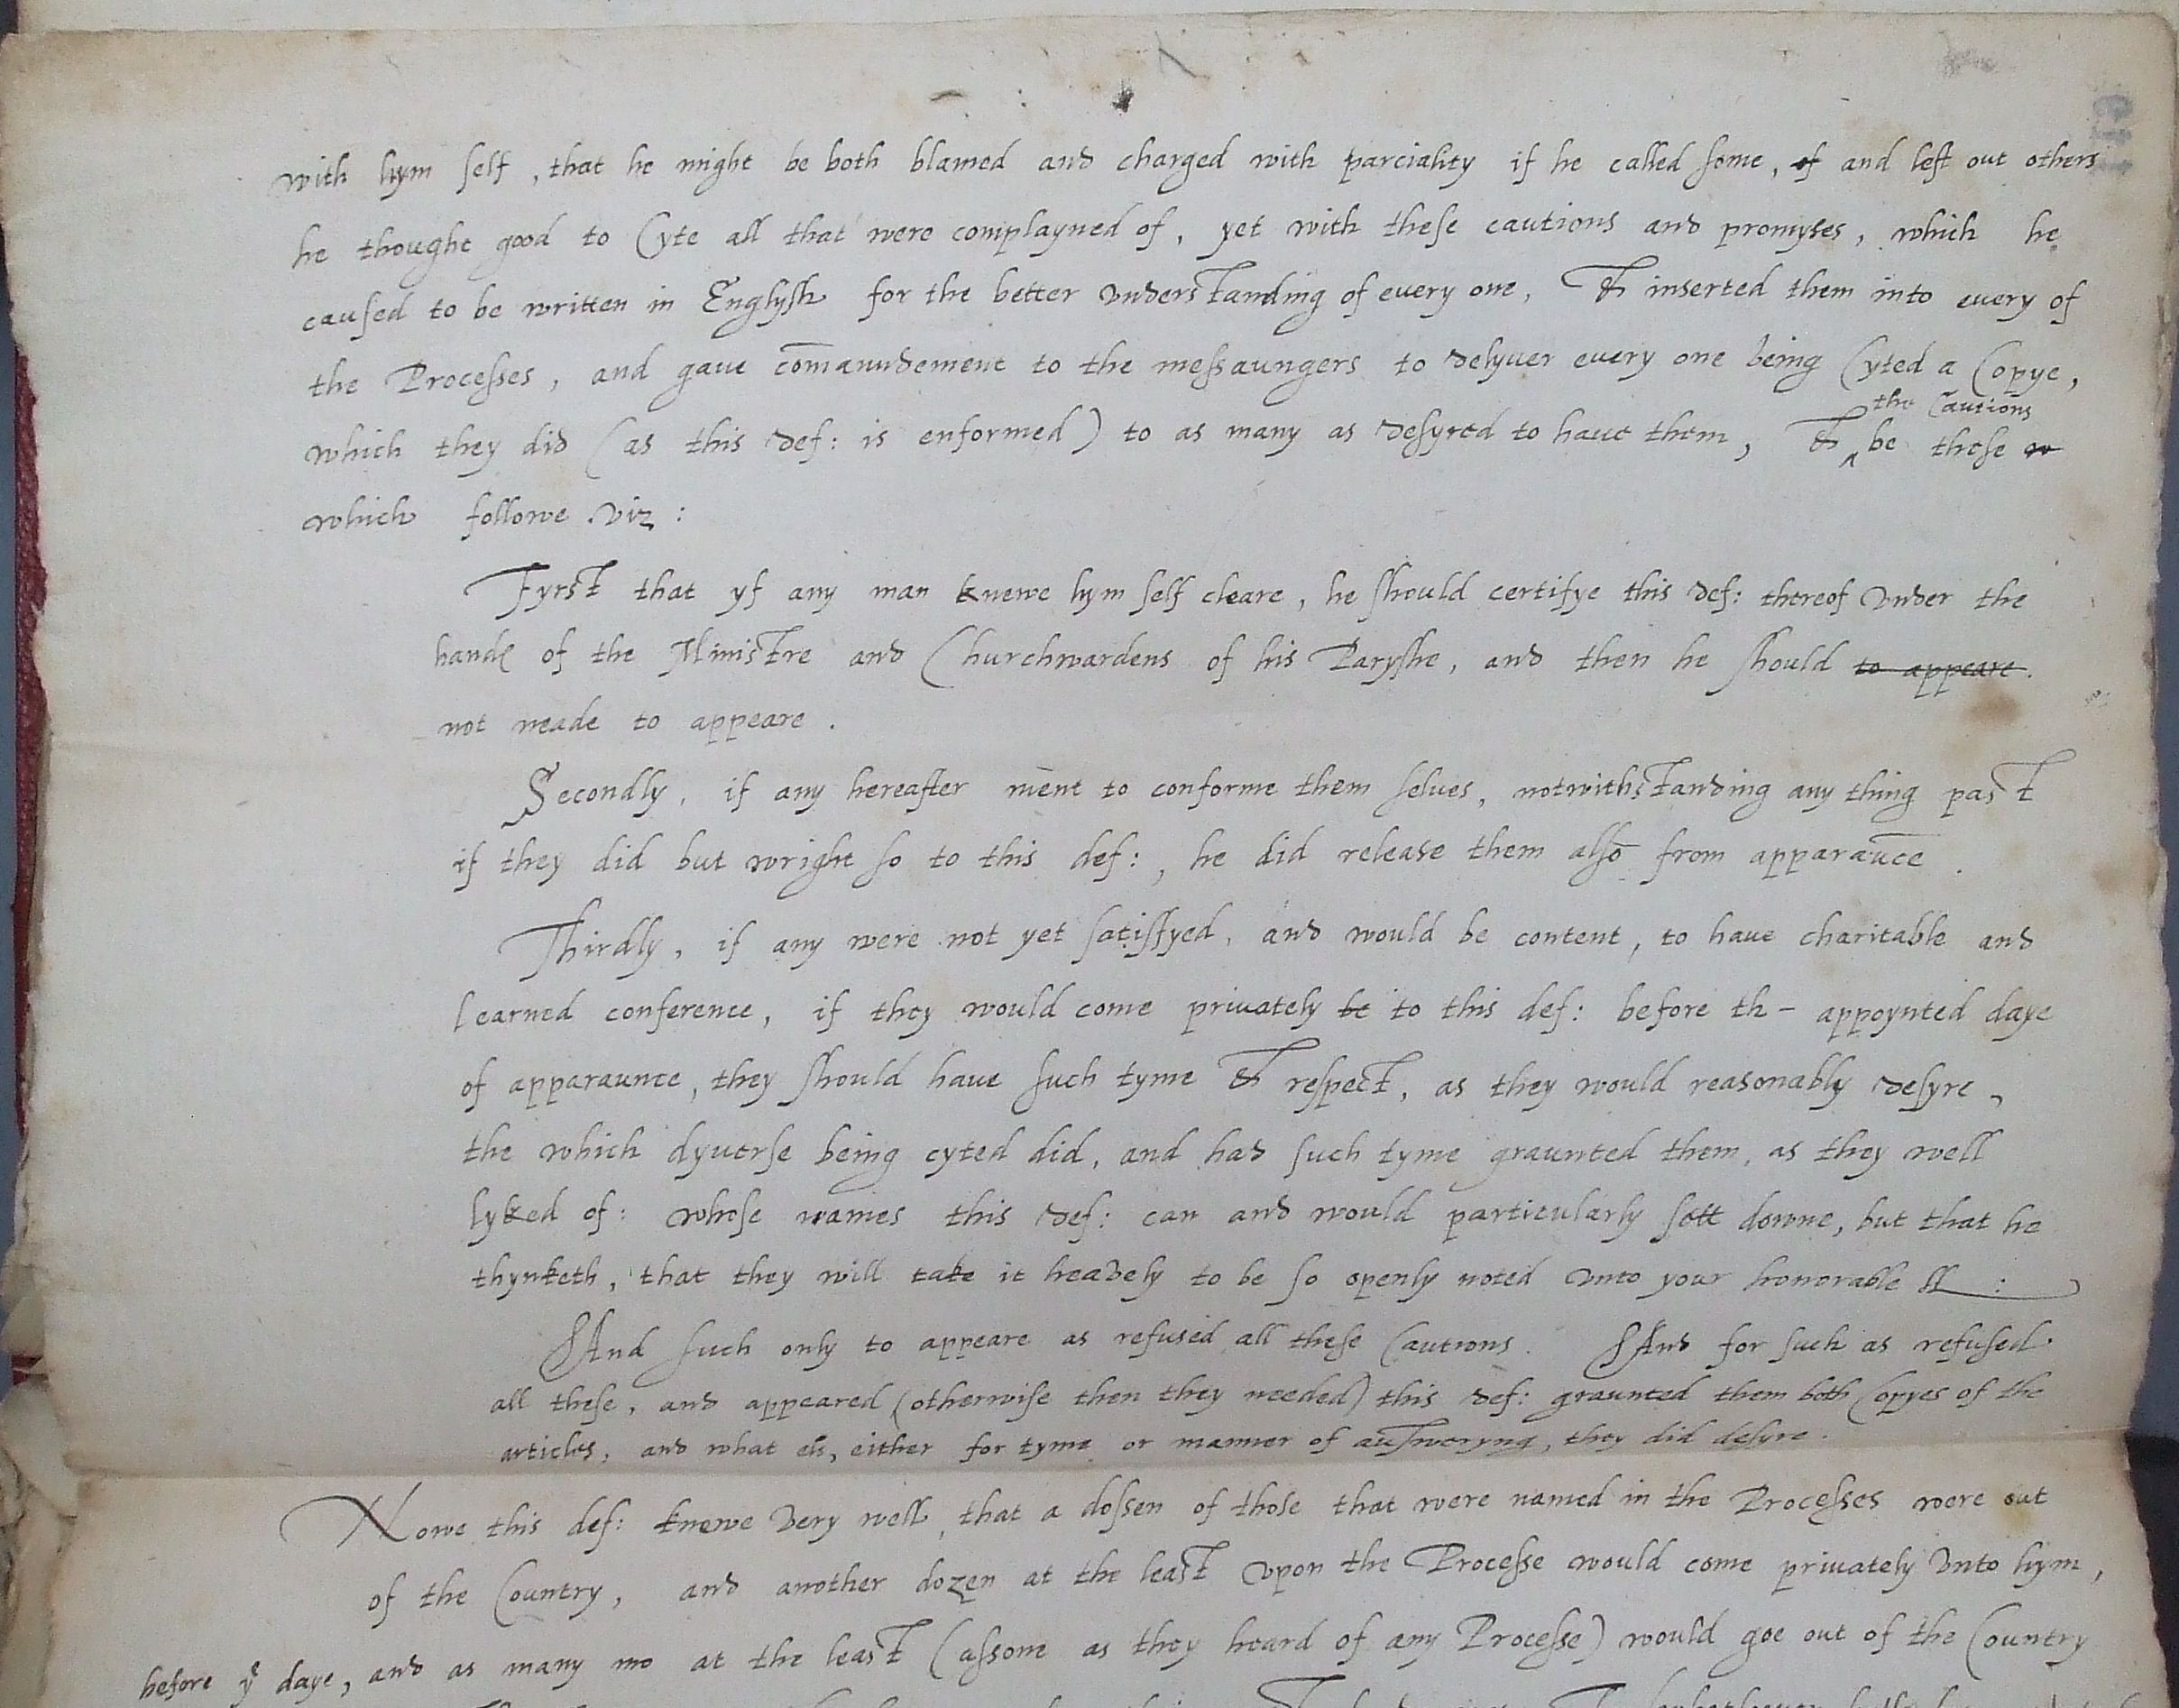 with hym self, that he might be both blamed and charged with parciality if he called some, of and left out others
he thought good to Cyte all that were complayned of, yet with these cautions and promyses, which he
caused to be written in Englysh for the better vnderstanding of euery one, & inserted them into euery of
the Processes, and gaue cōmaundement to the messaungers to delyuer euery one being Cyted a Copye,
the Cautions
which they did (as this def: is enformed) to as many as desyred to haue them, & ^ be these w
which followe .viz:
Fyrst that yf any man knewe hym self cleare, he should certifye this def: thereof vnder the
handes of the Ministre and Churchwardens of his Paryshe, and then he should to appeare.
not neade to appeare.
Secondly, if any hereafter ment to conforme them selues, notwithstanding any thing past
if they did but wright so to this def:, he did release them also from apparaūce.
Thirdly, if any were not yet satisfyed, and would be content, to haue charitable and
learned conference, if they would come priuately be to this def: before th- appoynted daye
of apparaunce, they should haue such tyme & respect, as they would reasonably desyre,
the which dyuerse being cyted did, and had such tyme graunted them, as they well
lyked of: whose names this def: can and would particularly sett downe, but that he
thynketh, that they will take it heavely to be so openly noted vnto your honorable ll:
And such only to appeare as refused all these Cautions. And for such as refused
all these, and appeared (otherwise then they needed) this def: graunted them both Copyes of the
articles, and what els, either for tyme or manner of aunsweryng, they did desyre.
Nowe this def: knewe very well, that a dossen of those that were named in the Processes were out
of the Country, and another dozen at the least vpon the Processe would come priuately vnto hym,
before ye daye, and as many mo at the least (assone as they heard of any Processe) would goe out of the Country